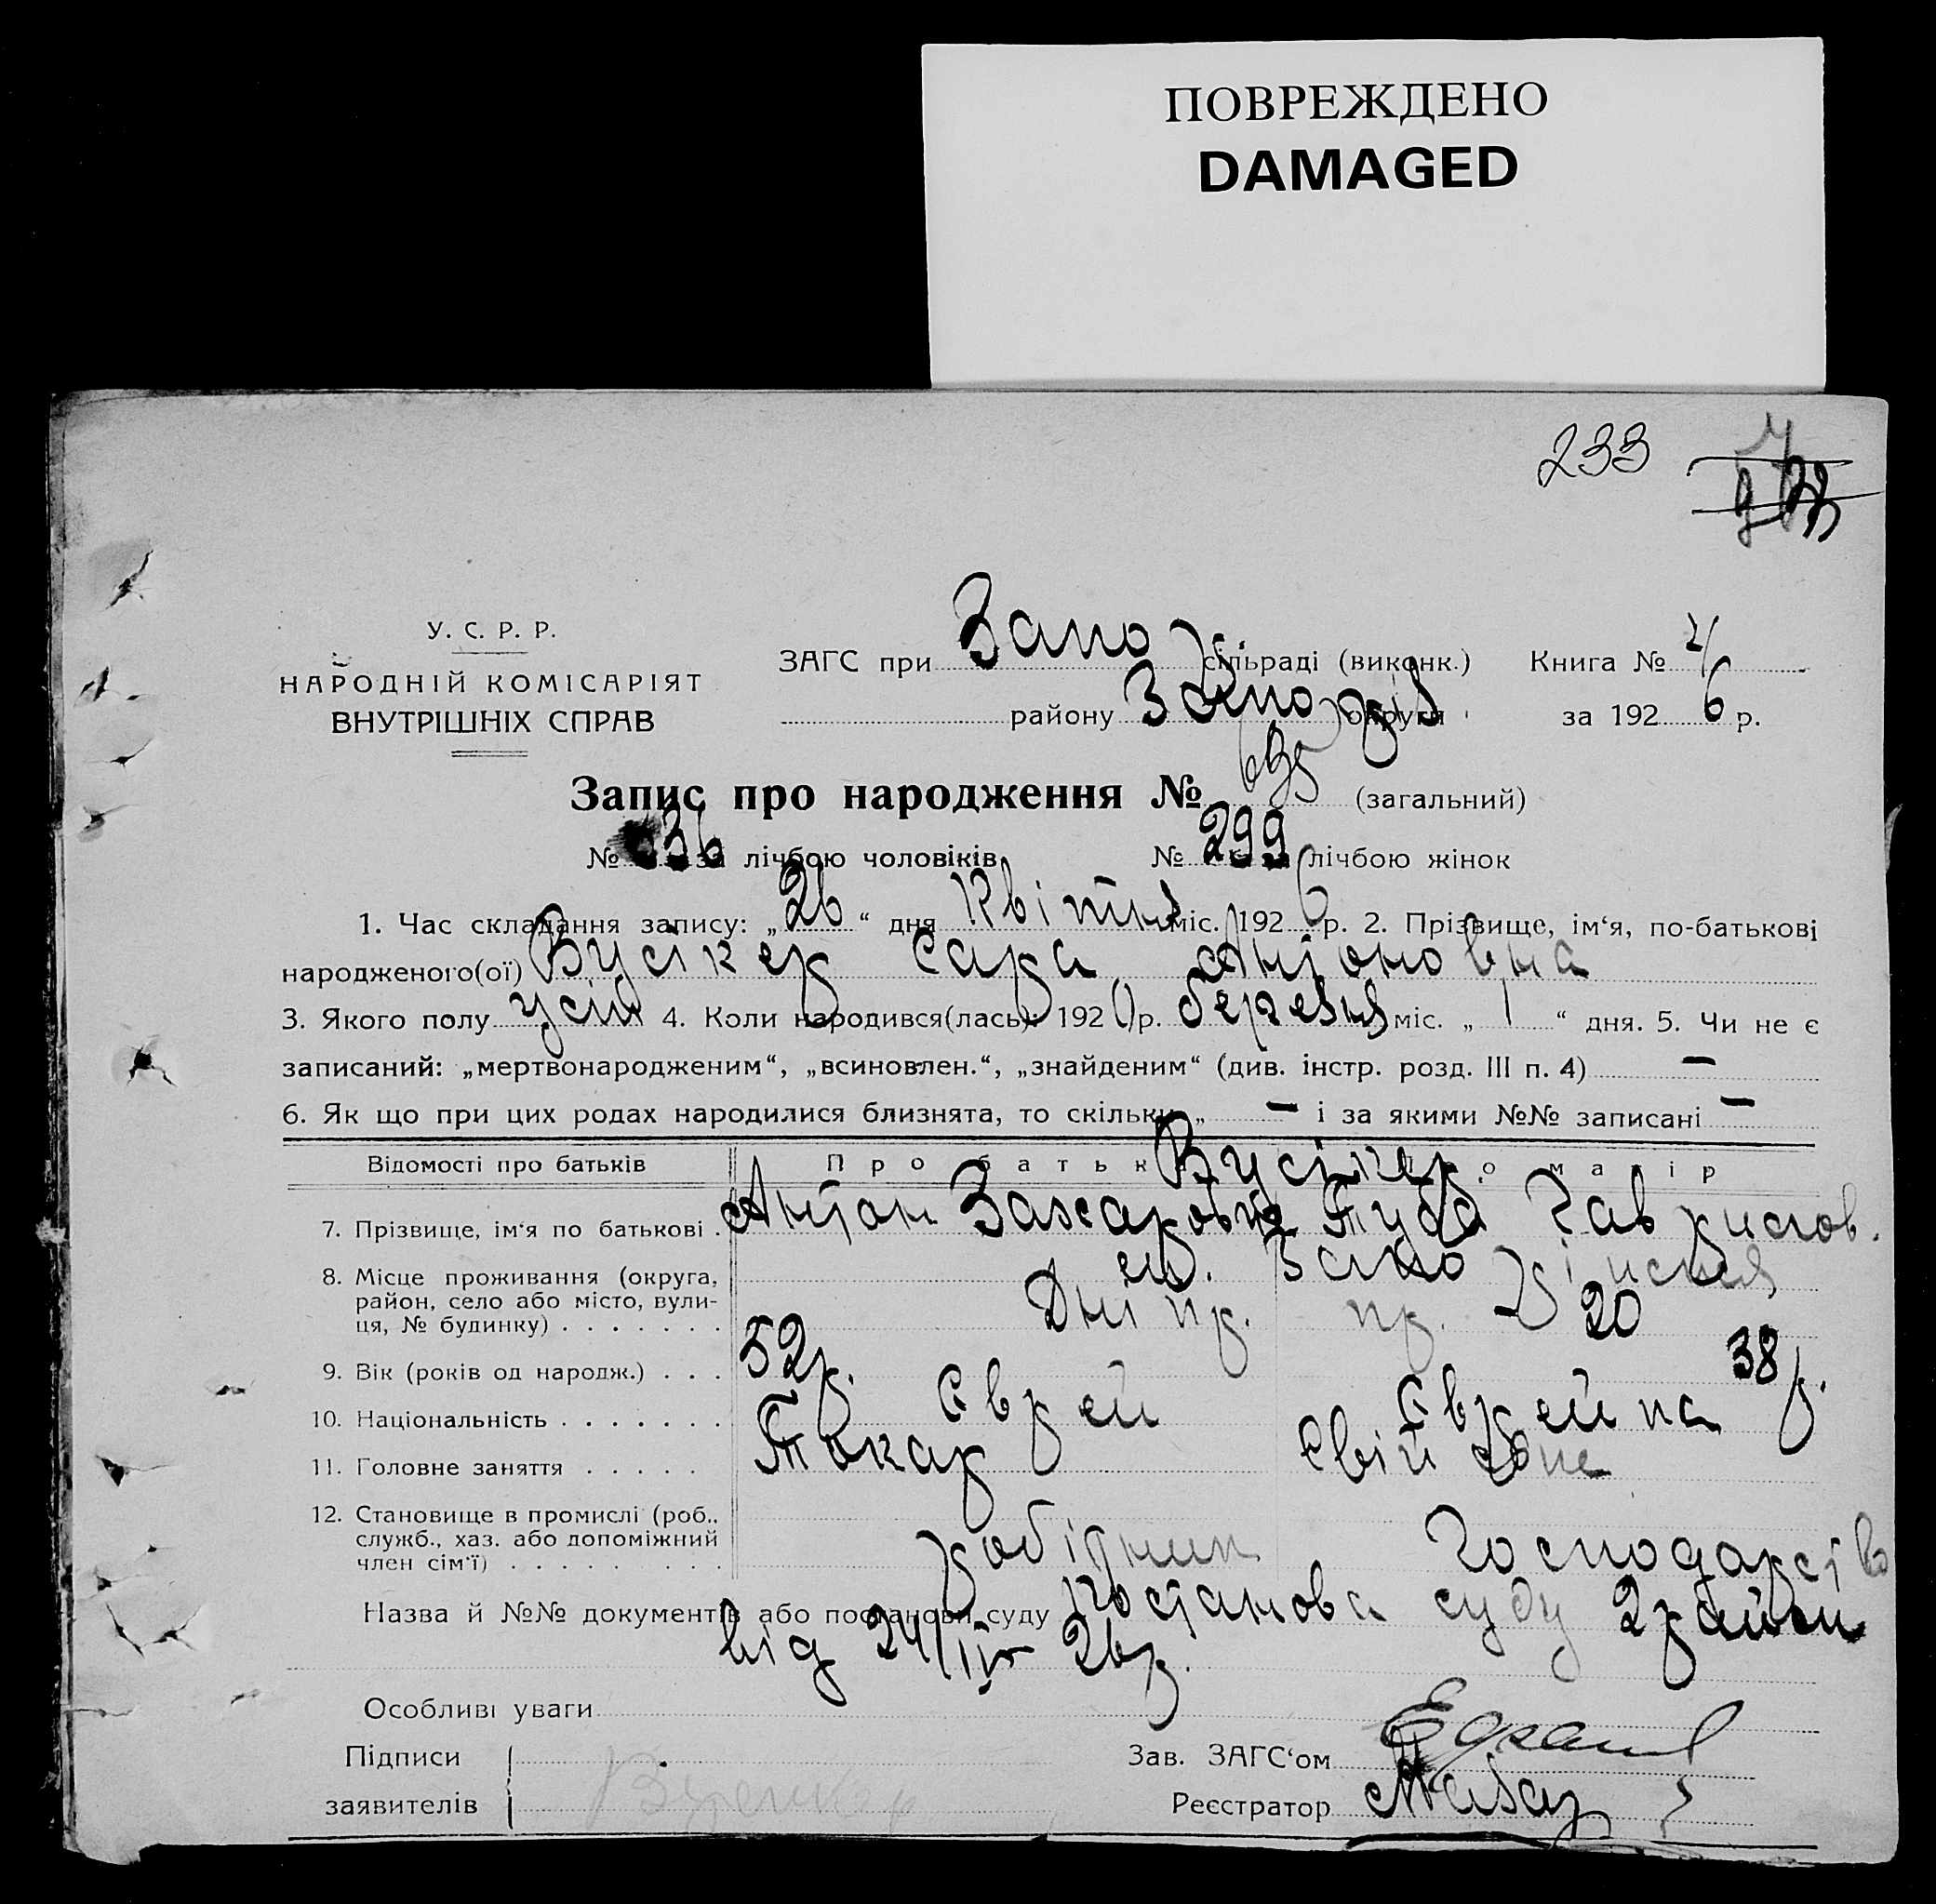 ПОВРЕЖДЕНО
DAMAGED
233
У. С. Р. Р.
НАРОДНІЙ КОМІСАРІЯТ
ВНУТРІШНІХ СПРАВ
ЗАГС при Запо сільраді (виконк.) Книга №
району Запо округи за 192 6 р.
Запис про народження № (загальний)
№ 36 за лічбою чоловіків № 299 лічбою жінок
1. Час складання запису: „ 26 “ дня Квітня міс. 192 6 р. 2. Прізвище, ім‘я, по-батькові
народженого(ої) Вусікер Сара Антоновна
3. Якого полу 4. Коли народився(лась): 192 р. березня міс. „ 1 “ дня. 5. Чи не є
записаний: „мертвонародженим“, „всиновлен.“, „знайденим“ (див. інстр. розд. III п. 4) —
6. Як що при цих родах народилися близнята, то скільки „ — і за якими №№ записані —
Відомості про батьків Про батька Вусікер Про матір
7. Прізвище, ім‘я по батькові . Антон Захаров Туба Гав
8. Місце проживання (округа,
район, село або місто, вули-
ця, № будинку) . . . . . . . Дніпр. пр. 20
9. Вік (років од народж.) . . . 52р. 38р.
10. Національність . . . . . . . Єврей Єврейка
11. Головне заняття . . . . . Токар Свій
12. Становище в промислі (роб.,
служб., хаз. або допоміжний
член сім‘ї) . . . . . . . . робітник Господарство
Назва й №№ документів або постанови суду Постанова суду 2 район
від 24/IV 26р.
Особливі уваги
Підписи
заявителів
Зав. ЗАГС‘ом
Реєстратор